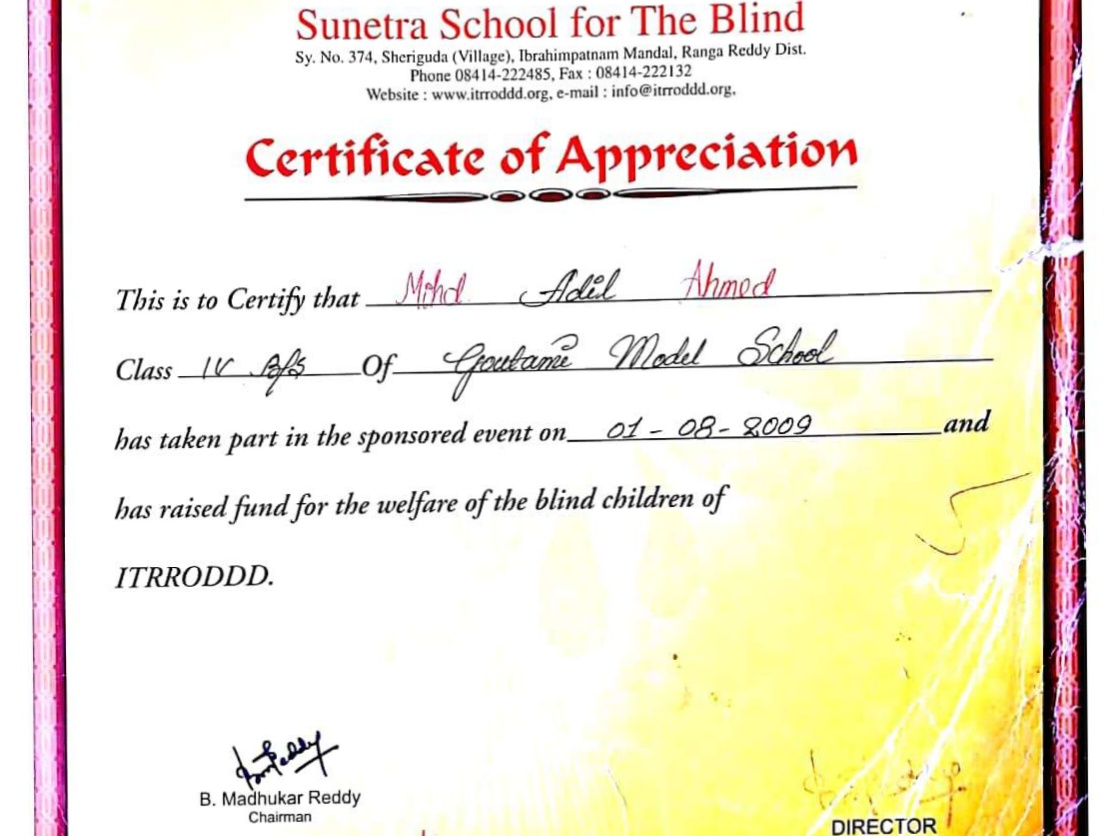 Sunetra School for The Blind
Sy. No. 374, Sheriguda (Village), Ibrahimpatnam Mandal, Ranga Reddy Dist.
Phone 08414-222485, Fax : 08414-222132
Website : www.itrroddd.org, e-mail : info@itrroddd.org.
Certificate of Appreciation
This is to Certify that Mohd Adil Ahmed
Class IV Of Goutami Model School
has taken part in the sponsored event on 01-08-2009 and
has raised fund for the welfare of the blind children of
ITRRODDD.
B. Madhukar Reddy
Chairman
DIRECTOR